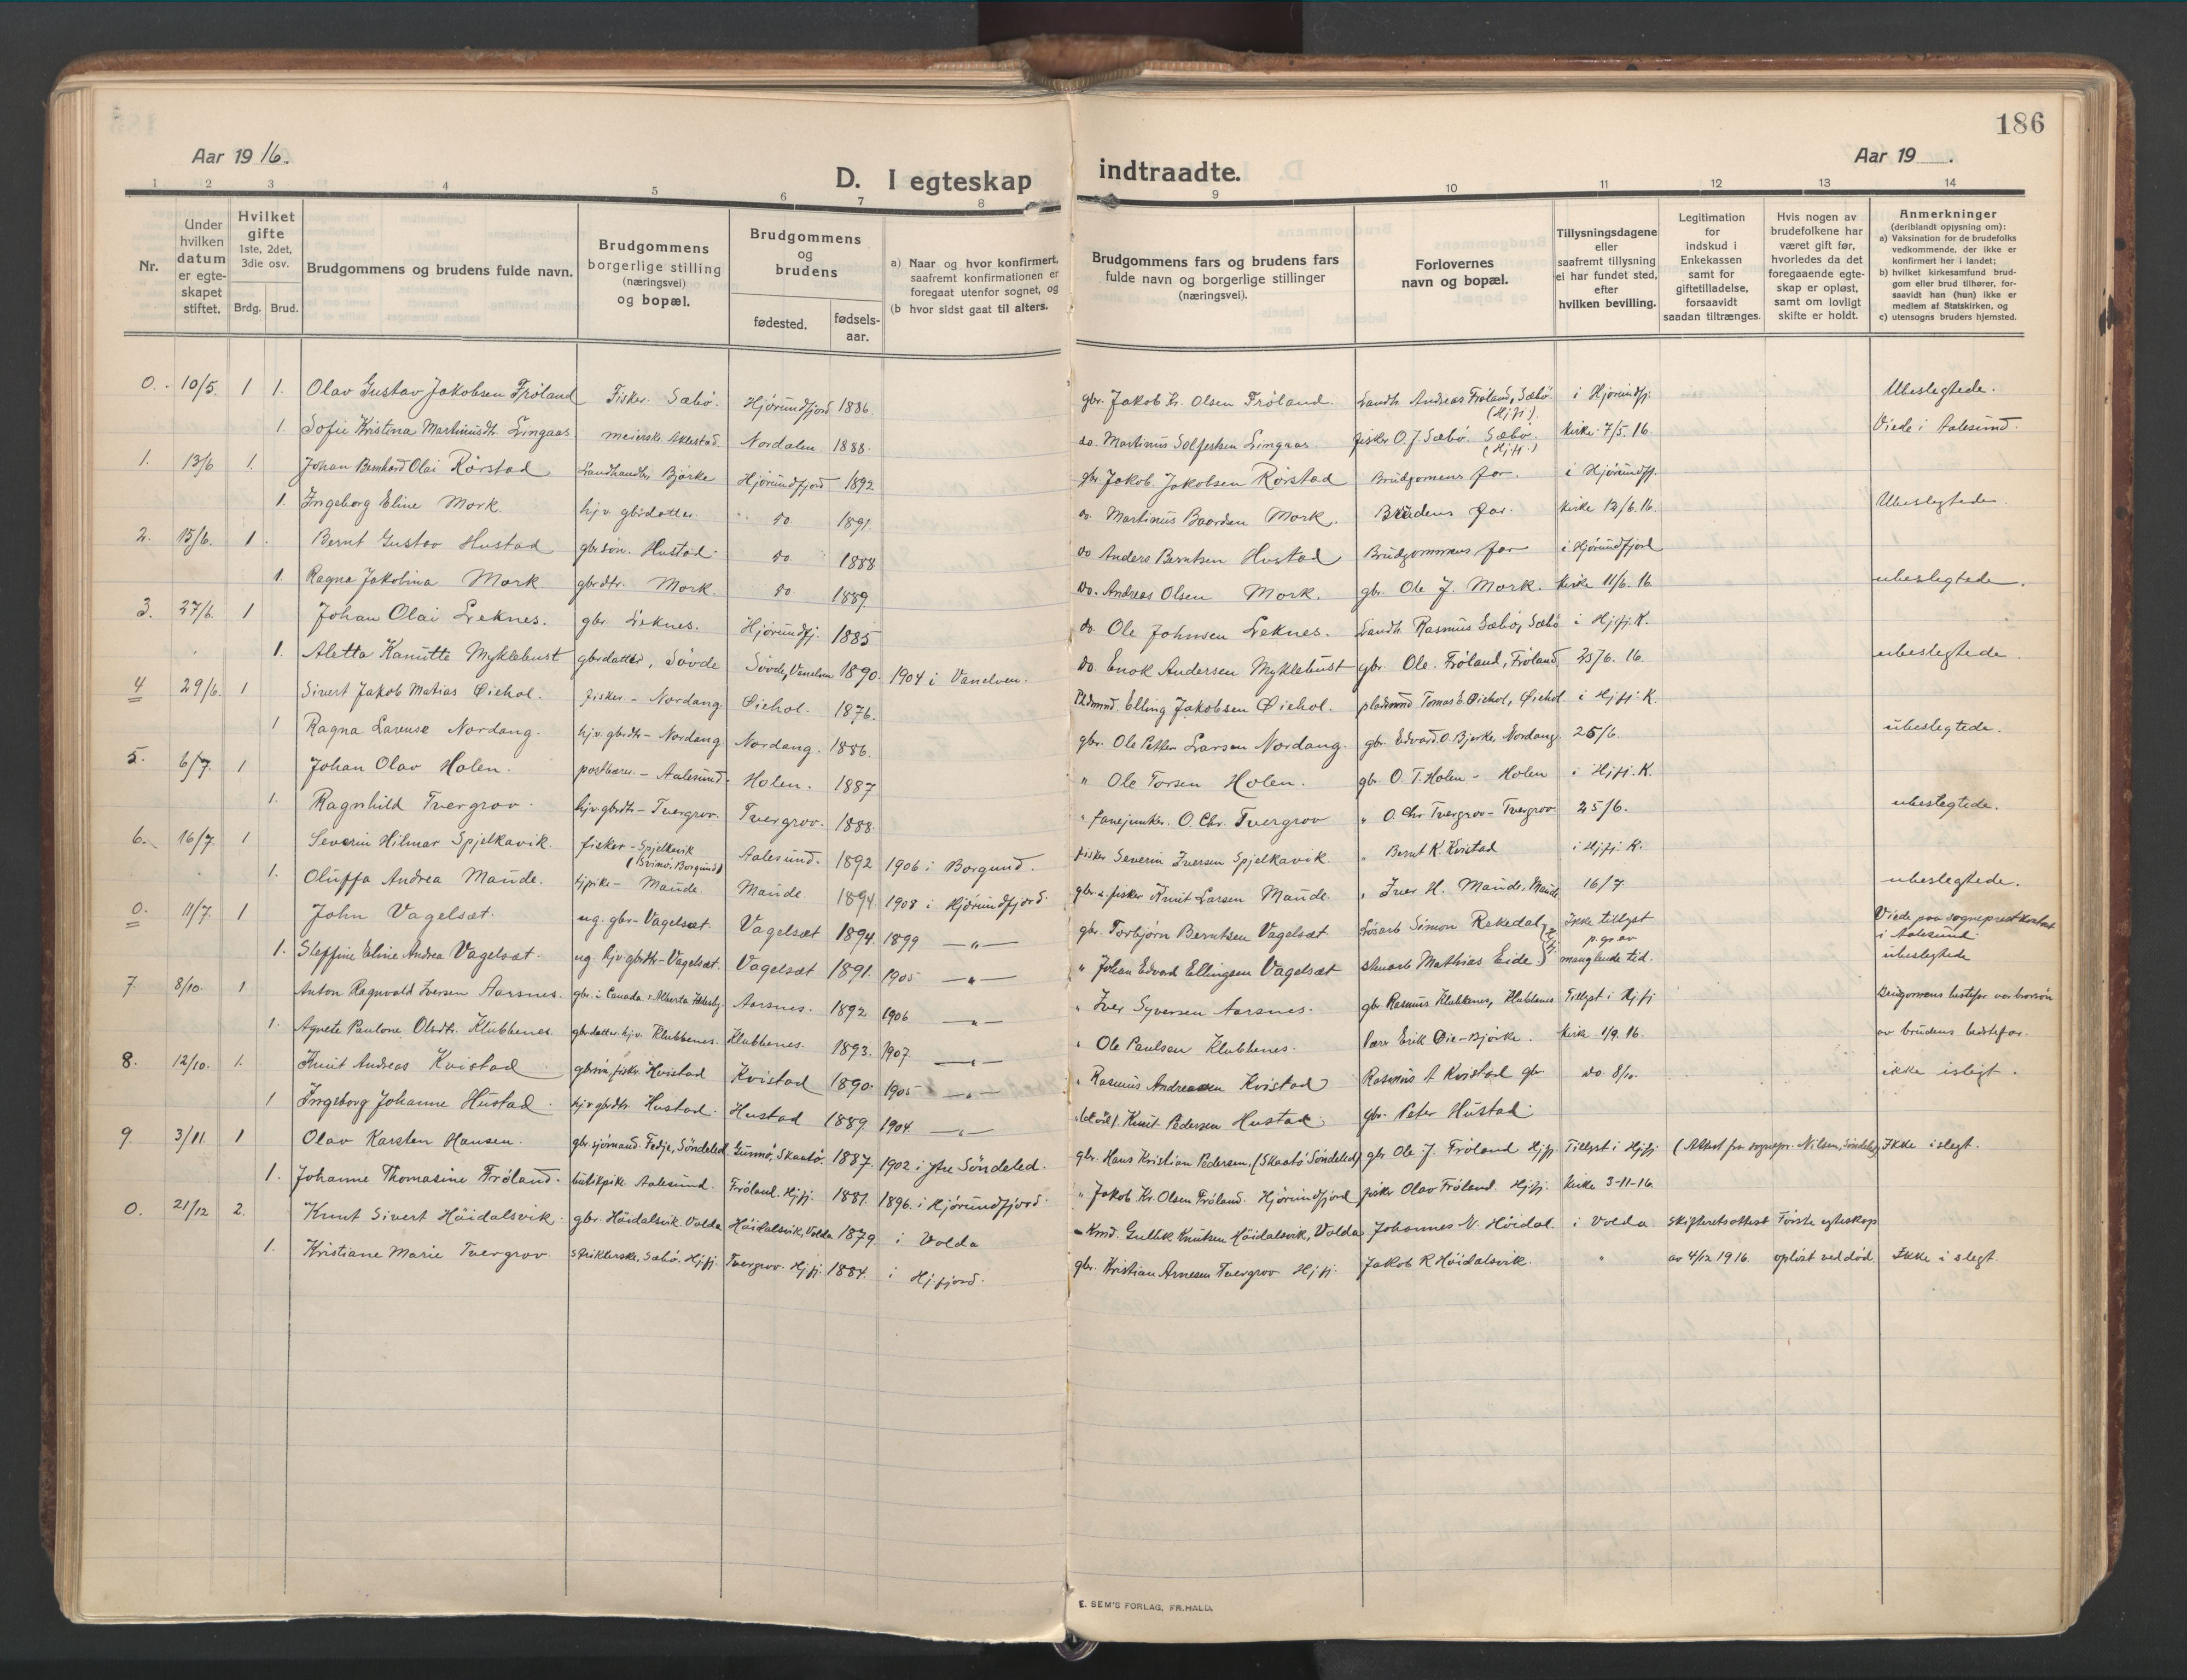 186
Aar 1916.
Aar 19 .
D. I egteskap indtraadte.
1 2 3 4 5 6 7 8 9 10 11 12 13 14
Nr.
Under hvilken datum er egteskapet stiftet.
Hvilket gifte 1ste, 2det, 3die osv.
Brdg. Brud.
Brudgommens og brudens fulde navn.
Brudgommens borgerlige stilling (næringsvei) og bopæl.
Brudgommens og brudens
fødested. fødselsaar.
a) Naar og hvor konfirmert, saafremt konfirmationen er foregaat utenfor sognet, og
(b hvor sidst gaat til alters.
Brudgommens fars og brudens fars fulde navn og borgerlige stillinger (næringsvei).
Forlovernes navn og bopæl.
Tillysningsdagene eller saafremt tillysning ei har fundet sted, efter hvilken bevilling.
Legitimation for indskud i Enkekassen samt for giftetilladelse, forsaavidt saadan tiltrænges.
Hvis nogen av brudefolkene har været gift før, hvorledes da det foregaaende egteskap er opløst, samt om lovligt skifte er holdt.
Anmerkninger (deriblandt oplysning om):
a) Vaksination for de brudefolks vedkommende, der ikke er konfirmert her i landet;
b) hvilket kirkesamfund brudgom eller brud tilhører, forsaavidt han (hun) ikke er medlem af Statskirken, og
c) utensogns bruders hjemsted.
0. 10/5. 1 1. Olav Gustav Jakobsen Frøland Fisker Sæbø. Hjørundfjord 1886. gbr. Jakob Kr. Olsen Frøland. Landh. Andreas Frøland, Sæbø (Hjfj). i Hjørundfj. Ubeslegtede.
1. Sofie Kristina Martinusdtr Lingaas meierske Nordalen 1888. do. Martinus Lingaas. fisker O. J. Sæbø. Sæbø. (Hjfj.) kirke 7/5. 16. Viede i Aalesund.
1. 13/6 1. Johan Bernhard Olai Rørstad Landhandler, Bjørke Hjørundfjord 1892 gbr. Jakob Jakobsen Rørstad Brudgomens far. i Hjørundfj.
1. Ingeborg Eline Mork hjv. gbrdatter " do. 1891. do. Martinus Baardsen Mork. Brudens far. kirke 12/6. 16. Ubeslegtede.
2. 15/6. 1. Bernt Gustav Hustad gbr søn. Hustad do 1888 do Anders Berntsen Hustad Brudgommens far i Hjørundfjord
1. Ragna Jakobina Mork gbrdtr. Mork. do. 1889. do. Andreas Olsen Mork. gbr. Ole J. Mork. kirke 11/6. 16. ubeslegtede.
3. 27/6. 1 Johan Olai Leknes. gbr. Leknes. Hjørundfj. 1885 do. Ole Johnsen Leknes. Landh. Rasmus Sæbø, Sæbø i Hjfj. K.
1. Aletta Kanutte Myklebust gbrdatter, Søvde Søvde, Vanelven 1890. 1904 i Vanelven. do Enok Andersen Myklebust gbr. Ole Frøland, Frøland 25/6. 16. ubeslegtede
4 29/6. 1 Sivert Jakob Matias Øiehol. fisker - Nordang. Øiehol. 1876. Pldsmnd. Elling Jakobsen Øiehol. pladsmnd Tomas E Øiehol, Øiehol i Hjfj. K.
1 Ragna Laveuse Nordang. hjv. gbrdtr - Nordang Nordang. 1886. gbr. Ole Petter Larsen Nordang. gbr. Edvard O Bjerke Nordang. 25/6. ubeslegtede.
5. 6/7. 1 Johan Olav Holen. postbærer - Aalesund. Holen. 1887 " Ole Torsen Holen. gbr. O. T. Holen - Holen i Hjfj. K.
1. Ragnhild Tvergrov. hjv. gbrdtr - Tvergrov. Tvergrov. 1888. " fanejunker. O. Chr. Tvergrov " O. Chr Tvergrov - Tvergrov 25/6. ubeslegtede.
6. 16/7 1 Severin Hilmar Spjelkavik. fisker - Spjelkavik (Borgund) Aalesund. 1892 1906 i Borgund. fisker Severin Iversen Spjelkavik. " Bernt K. Kvistad i Hjfj. K.
1. Oluffa Andrea Maude. tjpike - Maude. Maude. 1894. 1908 i Hjørundfjord. gbr. & fisker Knut Larsen Maude. " Iver H. Maude, Maude 16/7. ubeslegtede.
0. 11/7. 1 John Vagelsæt. ug. gbr - Vagelsæt. Vagelsæt 1894. 1899 —"— gbr. Torbjørn Berntsen Vagelsæt. Løsarb Simon Rekedal Ikke tillyst p. gr av Viede paa sogneprestkontoret i Aalesund.
1. Steffine Eline Andrea Vagelsæt. ug. hjv. gbrdtr - Vagelsæt. Vagelsæt 1891. 1905 —"— " Johan Edvard Ellingsen Vagelsæt Mathias Eide manglende tid. ubeslegtede
7 8/10. 1 Anton Ragnvald Iversen Aarsnes. gbr. i Canada, Alberta Aarsnes. 1892 1906 —"— " Iver Syversen Aarsnes. gbr Rasmus Klubbenes, Klubbenes Tillyst i Hjfj Brudgomens bestefar var brorsøn
1. Agnete Paulone Olsdtr. Klubbenes. gbrdatter. hjv. Klubbenes. Klubbenes. 1893. 1907 —"— " Ole Paulsen Klubbenes. Lærer Erik Øie - Bjørke. kirke 1/9. 16. av brudens bedstefar.
8. 12/10. 1. Knut Andreas Kvistad gbrsøn, fisker. Kvistad Kvistad 1890. 1905 —"— " Rasmus Andreassen Kvistad Rasmus A Kvistad gbr. do. 8/10. ikke i slegt.
1 Ingeborg Johanne Hustad. hjv gbrdtr. Hustad. Hustad 1889. 1904. —"— Knut Pedersen Hustad. gbr. Peter Hustad.
9. 3/11. 1 Olav Karsten Hansen. gbr. sjømand. Fedje, Søndeled. Gumø, Skaatø. 1887. 1902 i Ytre Søndeled. gbr. Hans Kristian Pedersen, (Skaatø Søndeled) gbr Ole J. Frøland Hjfj. Tillyst i Hjfj. (Attest fra sognepr. Nilsen, Søndeled) Ikke i slegt.
1. Johanne Thomasine Frøland. butikpike Aalesund. Frøland. Hjfj. 1881. 1896. i Hjørundfjord. " Jakob Kr. Olsen Frøland. Hjørundfjord fisker Olav Frøland. Hjfj. kirke 3-11-16
0. 21/12 2. Knut Sivert Høidalsvik. gbr. Høidalsvik. Volda Høidalsvik, Volda 1879. i Volda Gullik Knutsen Høidalsvik, Volda Johannes N. Høidal. i Volda. Skifteretsattest Første egteskap
1. Kristiane Marie Tvergrov. Strikkerske. Sæbø. Hjfj. Tvergrov. Hjfj. 1884. i Hjfjord. gbr. Kristian Arnesen Tvergrov Hjfj. Jakob K Høidalsvik. " av 4/12 1916. opløst ved død. Ikke i slegt.
E. SEM'S FORLAG, FR.HALD.